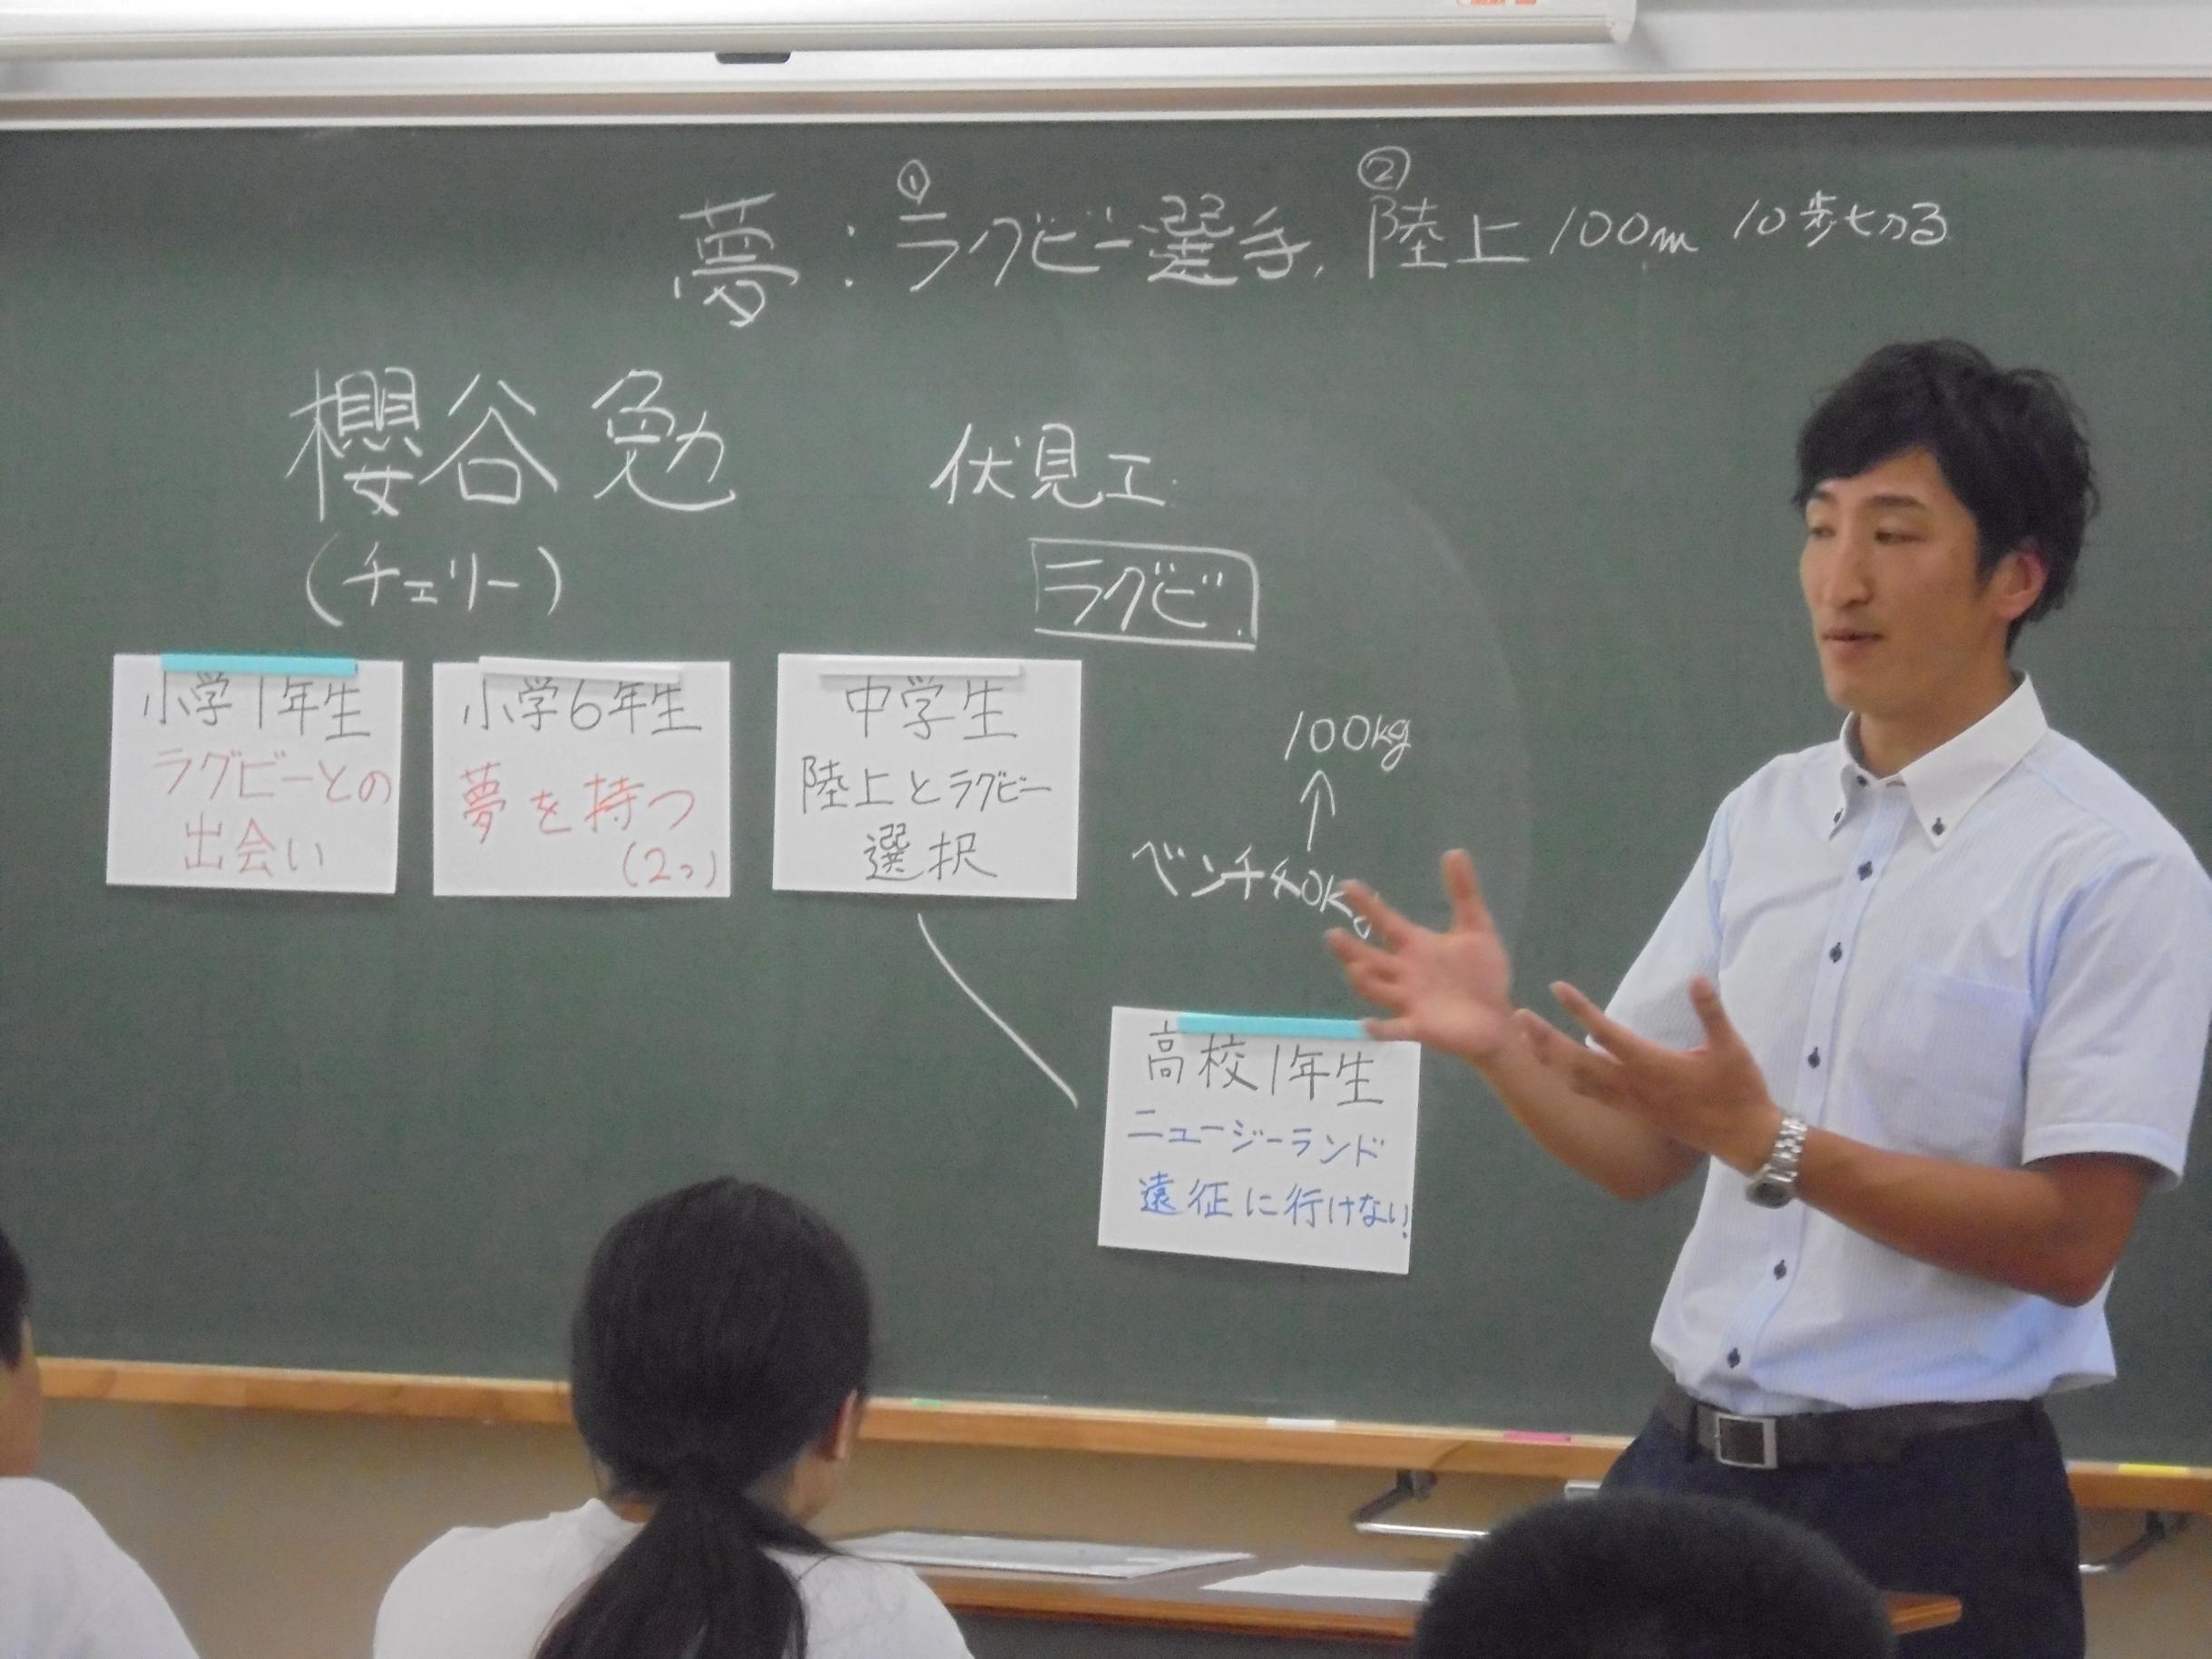 ① ②
夢：ラグビー選手, 陸上100m 10歩切る
櫻谷 勉
(チェリー)
伏見工
ラグビ
小学1年生
ラグビーとの
出会い
小学6年生
夢を持つ
(2つ)
中学生
陸上とラグビー
選択
100kg
ベンチ40kg
高校1年生
ニュージーランド
遠征に行けない!